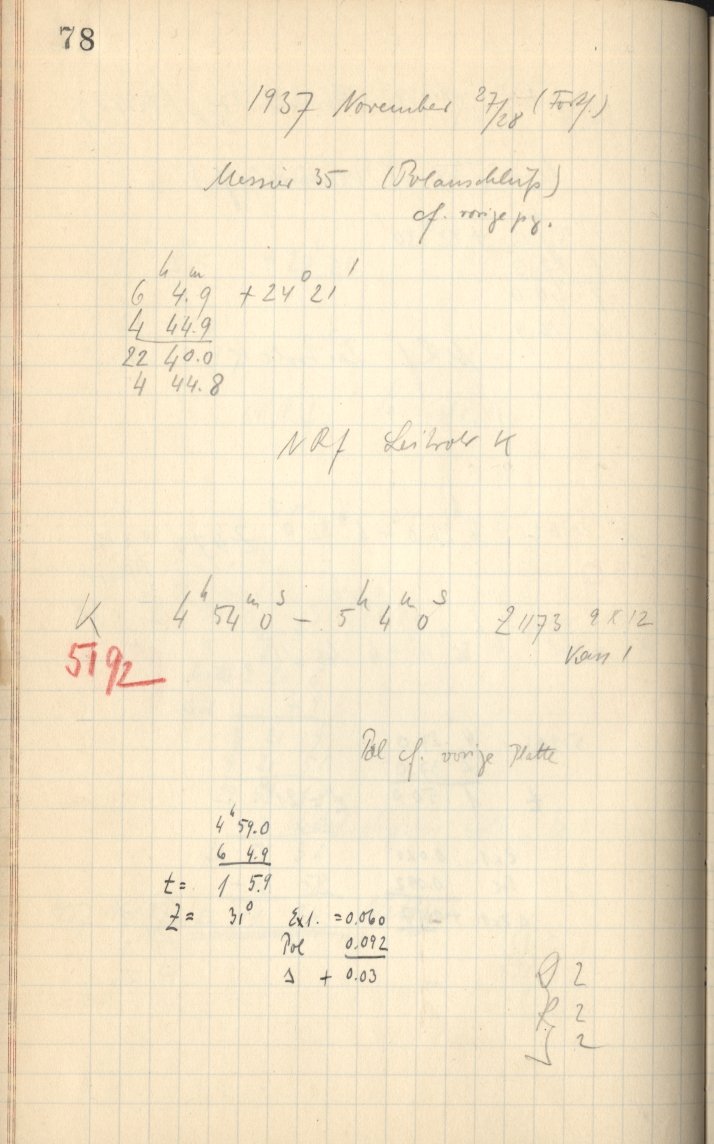 78
1937 November 27/28 (Forts.)
Messier 35 (Polanschluß)
cf. vorige pg.
6h 4m.9 +24° 21'
4 44.9
22 40.0
4 44.8
NRf K
K 4h 54m 0s – 5h 4m 0s Z 1173 9 x 12
5192 Kass 1
Pol cf. vorige Platte
4h 59.0
6 4.9
t = 1 5.9
Z = 31° Ext. = 0.060
Pol 0.092
Δ + 0.03
D 2
R 2
J 2